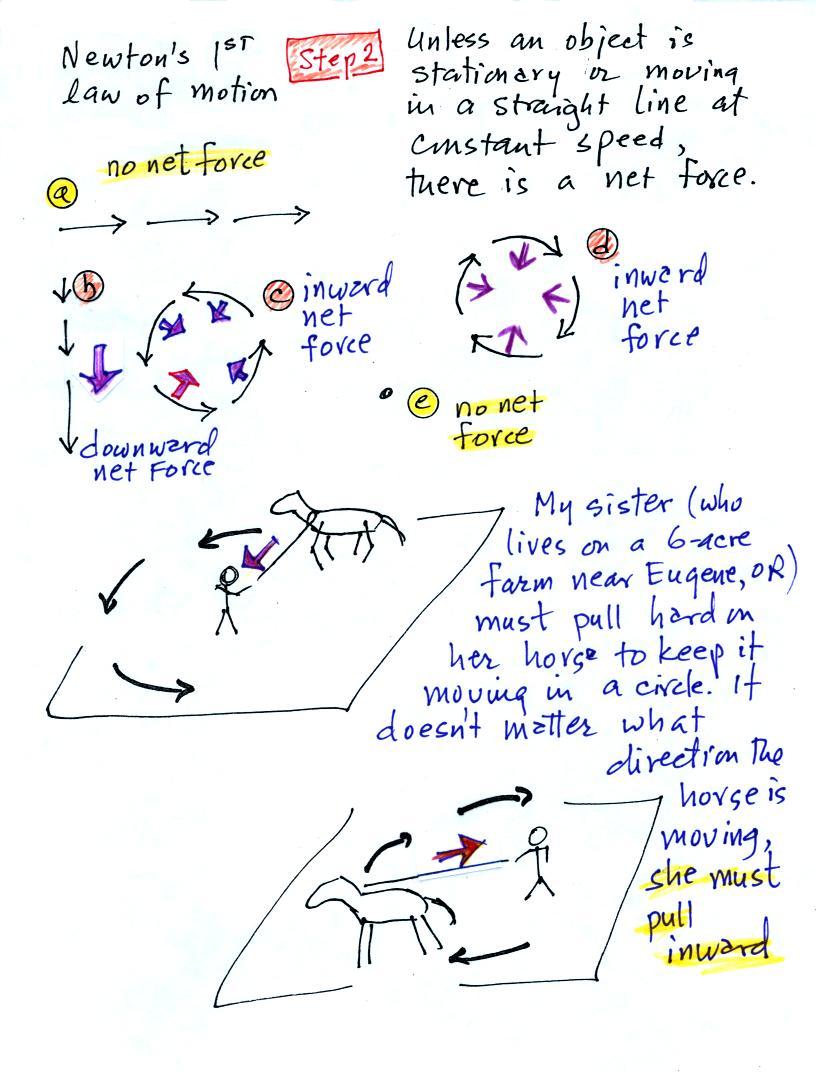 Newton's 1ST
law of motion
Step 2
Unless an object is
stationary or moving
in a straight line at
constant speed,
there is a net force.
no net force
a
b
c
inward
net
force
d
inward
net
force
e
no net
force
downward
net Force
My sister (who
lives on a 6-acre
farm near Eugene, OR)
must pull hard on
her horse to keep it
moving in a circle. It
doesn't matter what
direction the
horse is
moving,
she must
pull
inward